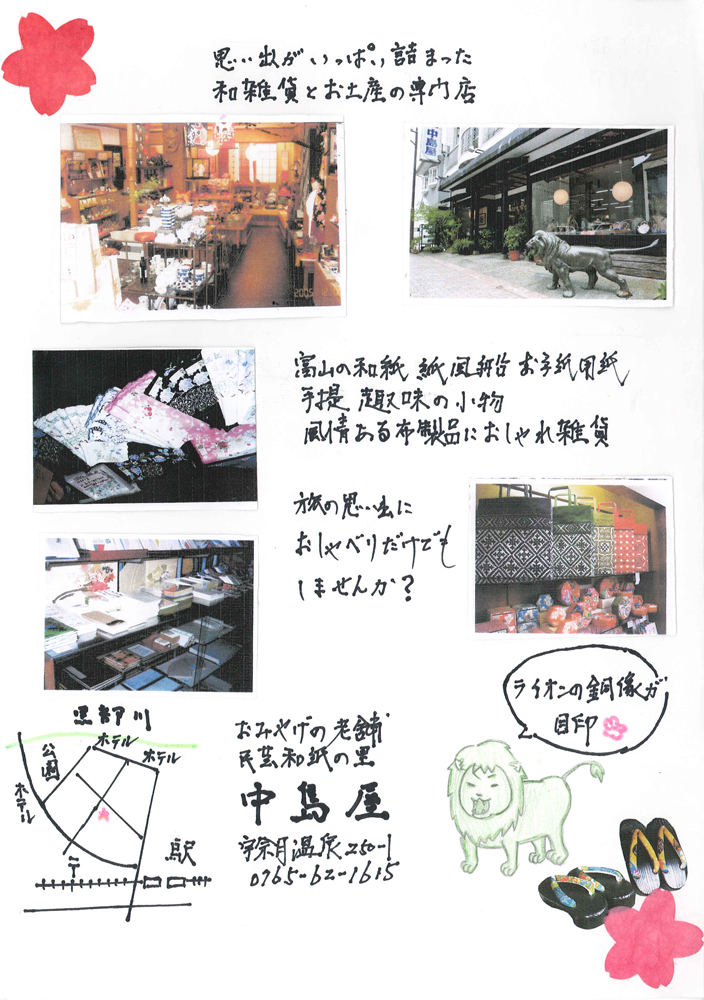 思い出がいっぱい詰まった
和雑貨とお土産の専門店
中島屋
2005
富山の和紙 紙風船 お手紙用紙
手提 趣味の小物
風情ある布製品におしゃれ雑貨
旅の思い出に
おしゃべりだけでも
しませんか?
ライオンの銅像が
目印
黒部川
ホテル
ホテル
公園
ホテル
駅
〒
おみやげの老舗
民芸和紙の里
中島屋
宇奈月温泉250-1
0765-62-1615